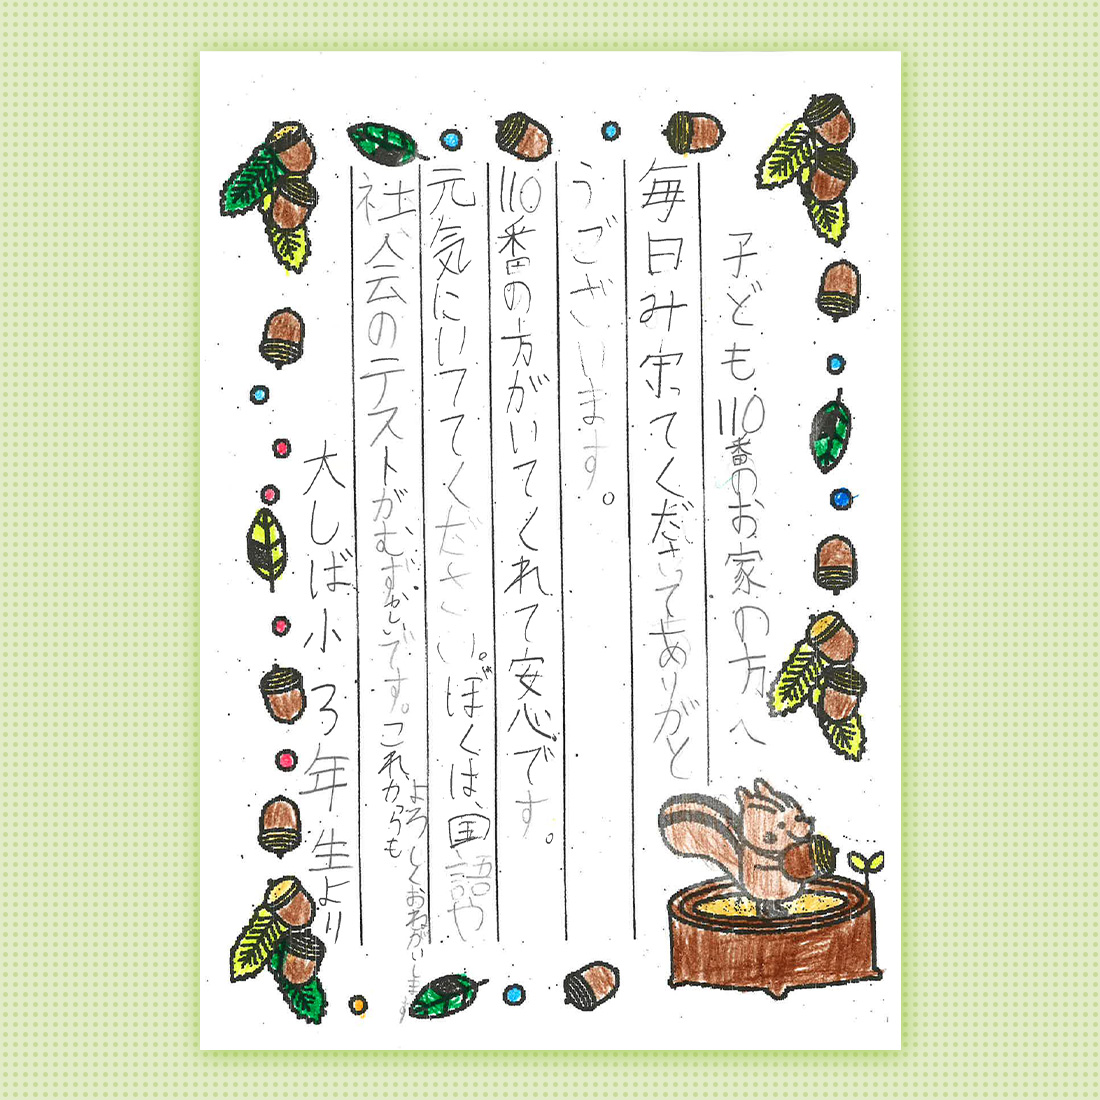 子ども110番のお家の方へ
毎日み守ってくださってありがと
うございます。
110番の方がいてくれて安心です。
元気にいてくださいね。ぼくは、国語や
社会のテストがむずかしいです。これからも
よろしくおねがいします
大しば小 3年生より